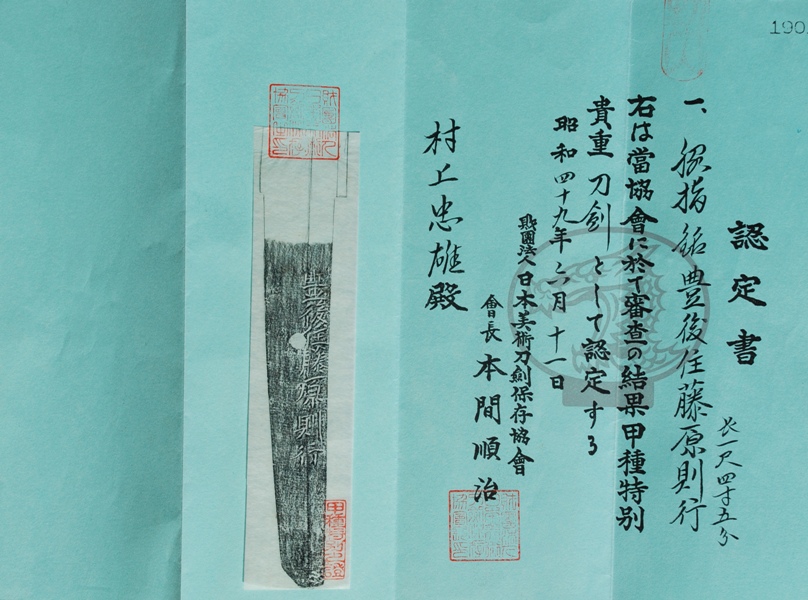 190
認定書
一、脇指 銘 豊後住藤原則行
長一尺四寸五分
右は當協會に於て審査の結果甲種特別
貴重刀剣として認定する
昭和四十九年六月十一日
財團法人日本美術刀劍保存協會
會長 本間順治
村上忠雄殿
豊後住藤原則行